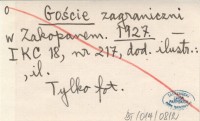 o Goście zagraniczni
w Zakopanem. 1927. —
IKC 18, nr 217, dod. ilustr.:
, il.
Tylko fot.